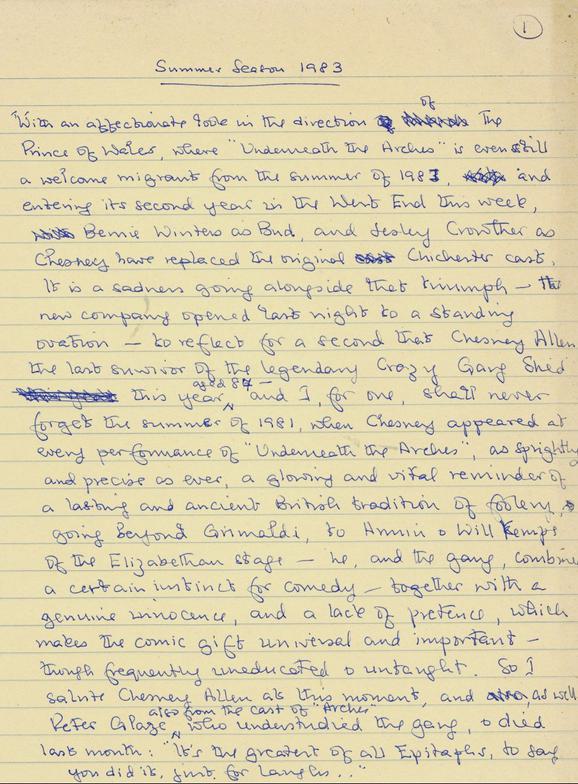 1
Summer Season 1983
of
"With an affectionate look in the direction The
Prince of Wales, where "Underneath the Arches" is even still
a welcome migrant from the summer of 1983, and
entering its second year in the West End this week,
Bernie Winters as Bud, and Lesley Crowther as
Chesney have replaced the original Chichester cast.
It is a sadness going alongside that triumph – the
new company opened last night to a standing
ovation – to reflect for a second that Chesney Allen
the last survivor of the legendary Crazy Gang
aged 87 –
this year, and I, for one, shall never
forget the summer of 1981, when Chesney appeared at
every performance of "Underneath the Arches", as sprightly
and precise as ever, a glowing and vital reminder of
a lasting and ancient British tradition of foolery,
going beyond Grimaldi, to Armin & Will Kempe
of the Elizabethan stage – he, and the gang, combine
a certain instinct for comedy – together with a
genuine innocence, and a lack of pretence, which
makes the comic gift universal and important –
though frequently uneducated & untaught. So I
salute Chesney Allen at this moment, and as well
also from the cast of "Arches"
Peter Glaze, who understudied the gang, & died
last month: "It's the greatest of all Epitaphs, to say
you did it, just for laughs..."